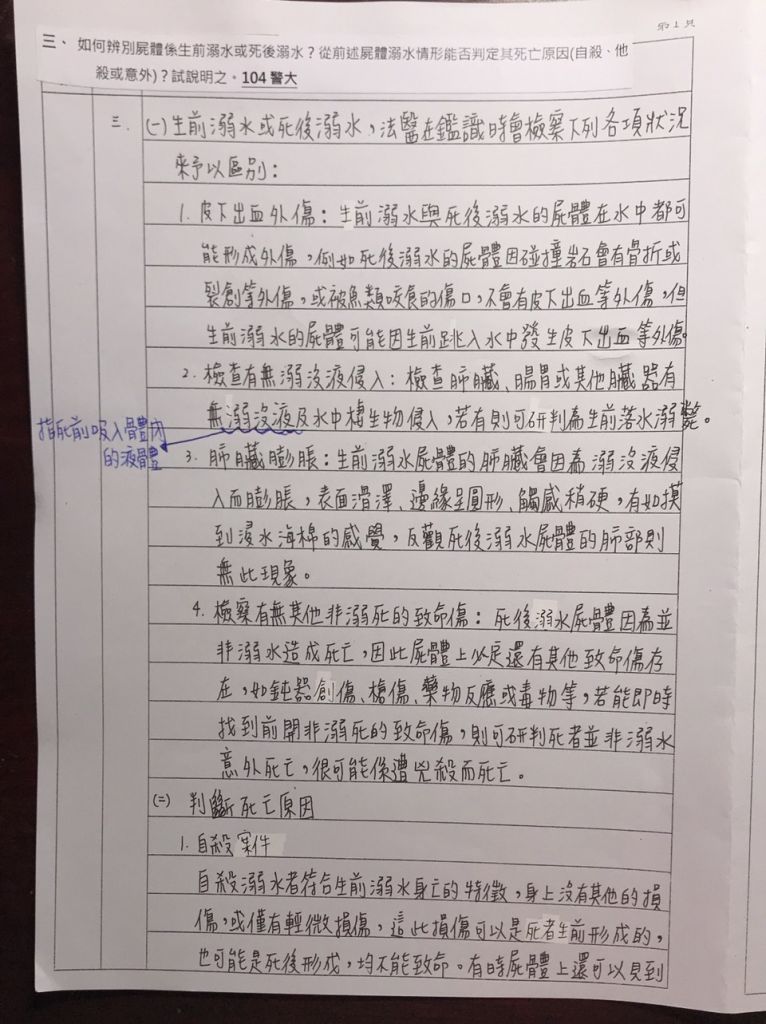 第1頁
三、 如何辨別屍體係生前溺水或死後溺水？從前述屍體溺水情形能否判定其死亡原因(自殺、他
殺或意外)？試說明之。104 警大
三. (一)生前溺水或死後溺水，法醫在鑑識時會檢察下列各項狀況
來予以區別：
1. 皮下出血外傷：生前溺水與死後溺水的屍體在水中都可
能形成外傷，例如死後溺水的屍體因碰撞岩石會有骨折或
裂創等外傷，或被魚類咬食的傷口，不會有皮下出血等外傷，但
生前溺水的屍體可能因生前跳入水中發生皮下出血等外傷。
2. 檢查有無溺沒液侵入：檢查肺臟、腸胃或其他臟器有
無溺沒液及水中棲生物侵入，若有則可研判為生前落水溺斃。
指死前吸入體內
的液體
3. 肺臟膨脹：生前溺水屍體的肺臟會因為溺沒液侵
入而膨脹，表面滑澤、邊緣呈圓形、觸感稍硬，有如摸
到浸水海棉的感覺，反觀死後溺水屍體的肺部則
無此現象。
4. 檢察有無其他非溺死的致命傷：死後溺水屍體因為並
非溺水造成死亡，因此屍體上必定還有其他致命傷存
在，如鈍器創傷、槍傷、藥物反應或毒物等，若能即時
找到前開非溺死的致命傷，則可研判死者並非溺水
意外死亡，很可能係遭兇殺而死亡。
(二) 判斷死亡原因
1. 自殺案件
自殺溺水者符合生前溺水身亡的特徵，身上沒有其他的損
傷，或僅有輕微損傷，這此損傷可以是死者生前形成的，
也可能是死後形成，均不能致命。有時屍體上還可以見到